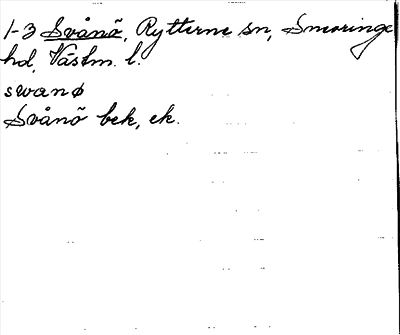 1-3 Svånö, Rytterne sn, Snevringe
hd, Västm. l.
swanø
Svånö bek, ek.